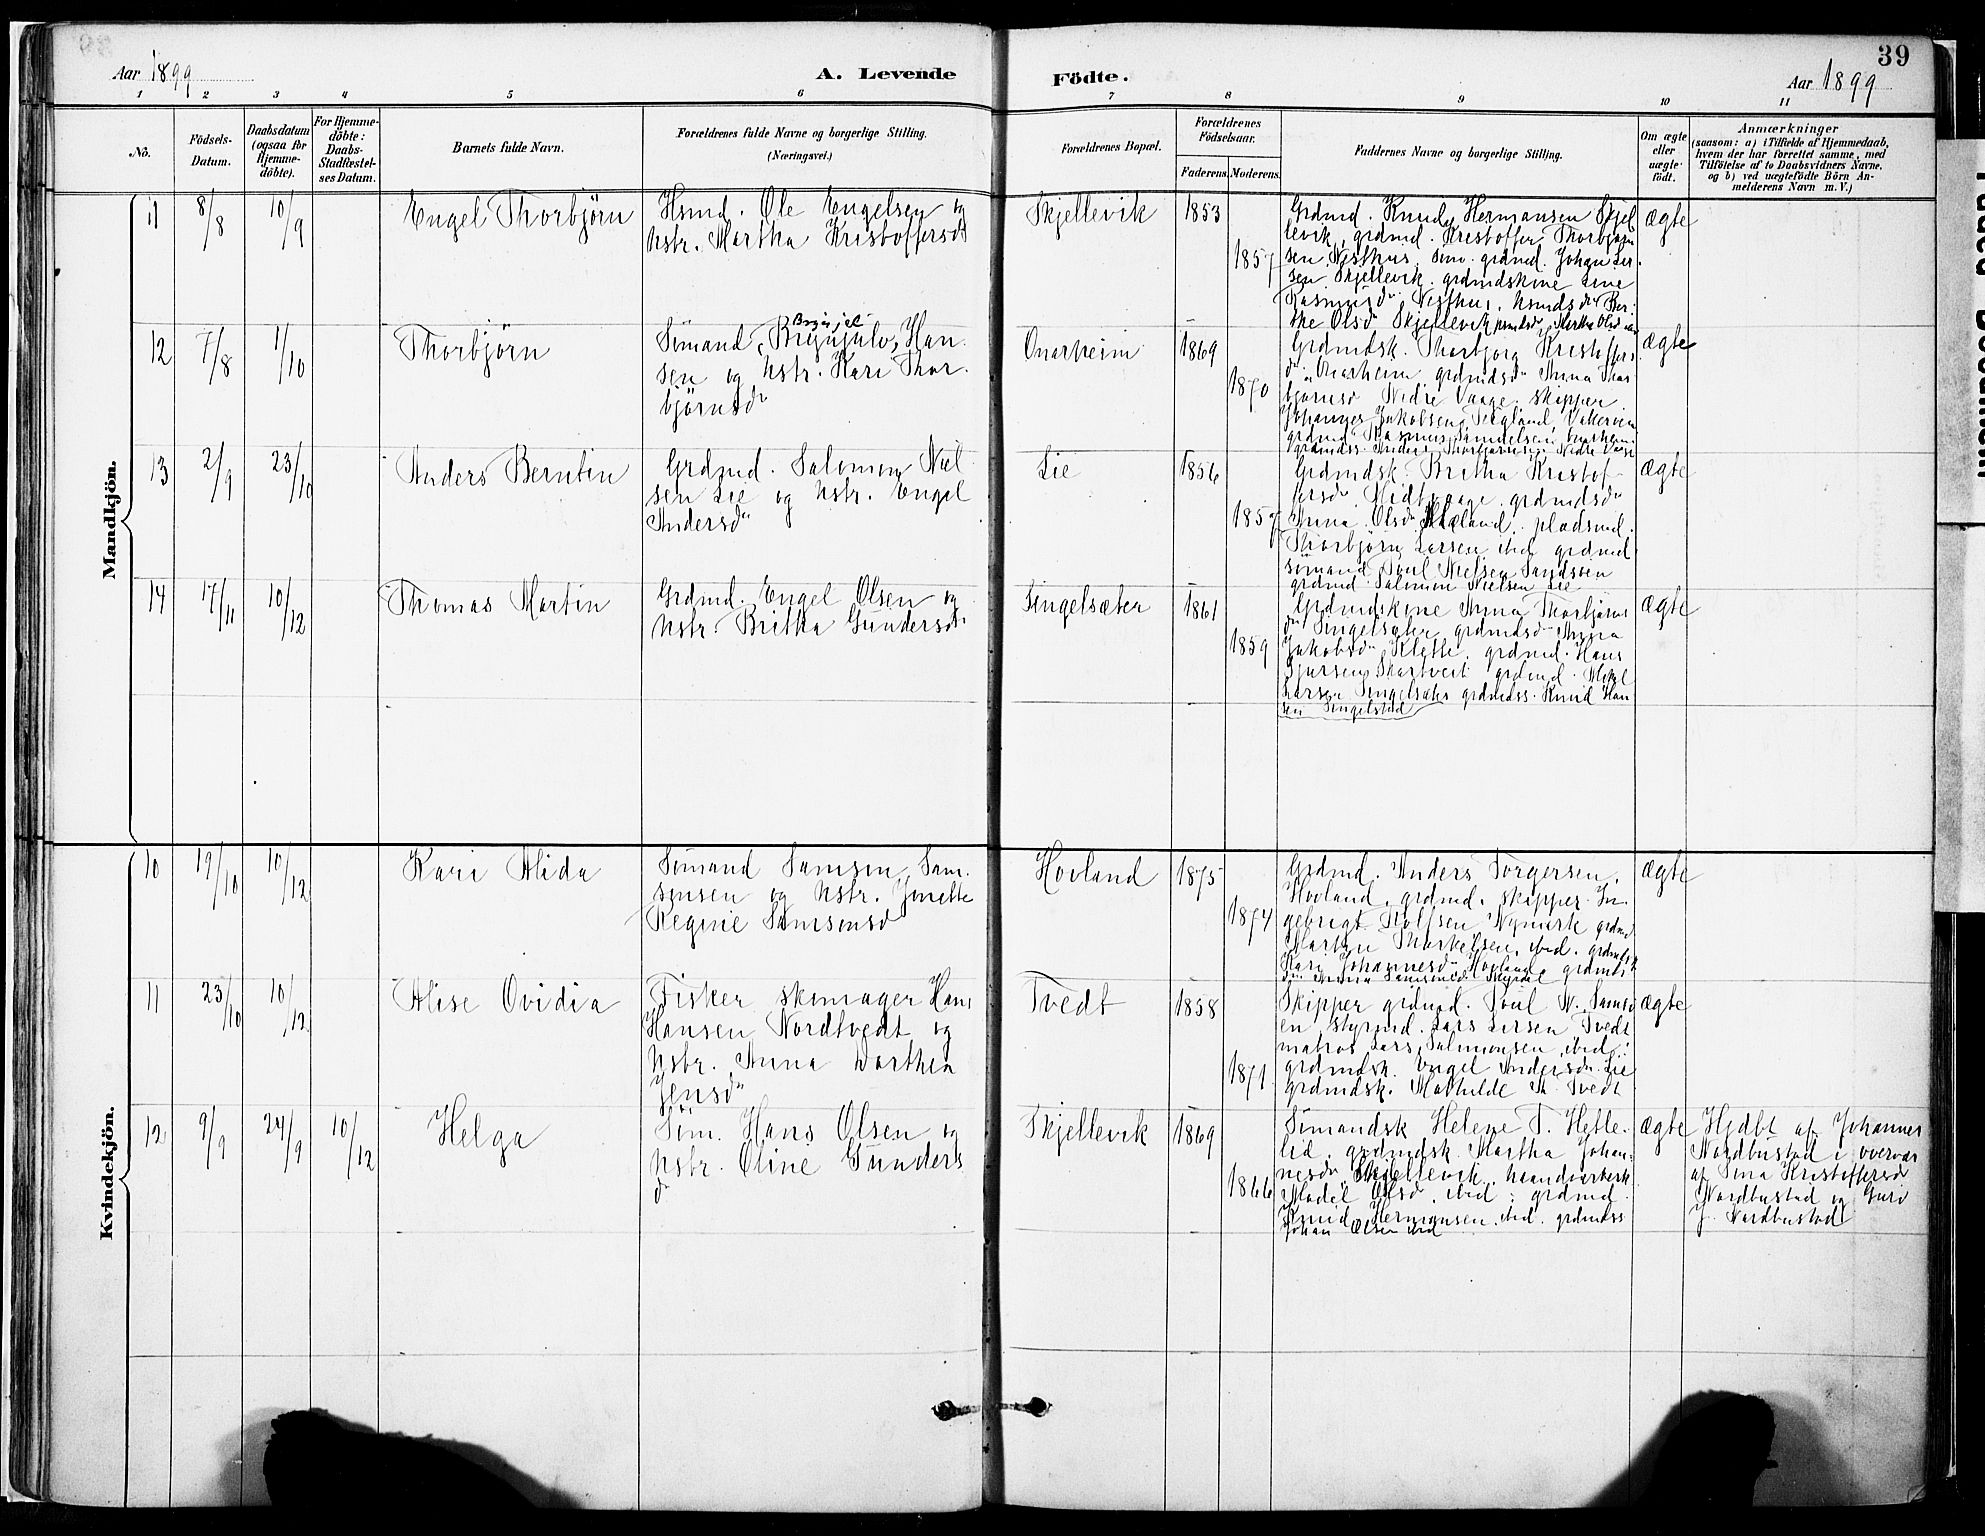 39
Aar 1899
A. Levende Födte.
Aar 1899
1 2 3 4 5 6 7 8 9 10 11
No.
Födsels-Datum.
Daabsdatum (ogsaa for Hjemme-döbte).
For Hjemme-döbte: Daabs-Stadfæstel-ses Datum.
Barnets fulde Navn.
Forældrenes fulde Navne og borgerlige Stilling. (Næringsvei.)
Forældrenes Bopæl.
Forældrenes Födselsaar.
Faderens. Moderens.
Faddernes Navne og borgerlige Stilling.
Om ægte eller uægte født.
Anmærkninger
(saasom: a) i Tilfælde af Hjemmedaab,
hvem der har forrettet samme, med
Tilföielse af to Daabsvidners Navne,
og b) ved uægtefödte Börn An-
melderens Navn m. V.)
Mandkjön.
11 8/8 10/9 Engel Thorbjörn
Hsmd. Ole Engelsen og
hstr. Martha Kristoffersdr
Skjellevik 1853 1857
Grdmd. Knud Hermansen Skjel
levik, grdmd. Kristoffer Thorbjörn
sen Nesthus, grdmd. Johan Lar
sen Skjellevik, grdmdskone
Rasmusdr Nesthus, hsmdsdr Ber
the Olsdr Skjellevik
ægte
12 7/8 1/10 Thorbjörn
Sömand Brynjulv Han
Brynjel
sen og hstr. Kari Thor
björnsdr
Onarheim 1869 1870
Grdmdsk. Thorbjorg Kristoffers
dr Onarheim, grdmdsdr Anna Thor
björnsdr Nedre Vaage, skipper
Johannes Jakobsen
grdmd Rasmus Samuelsen Onarheim
grdmdss. Anders Thorbjörnsen Nedre Vaage
ægte
13 2/9 23/10 Anders Berntin
Grdmd. Salomon Niel
sen Lie og hstr. Engel
Andersdr
Lie 1856 1857
Grdmdsk. Britha Kristof
fersdr Midtvaage, grdmdsdr
Anna Olsdr Hæland, pladsmd.
Thorbjörn Larsen ibid grdmd
sömand Poul Nielsen Sandvoen
grdmd. Salomon Nielsen Lie
ægte
14 17/11 10/12 Thomas Martin
Grdmd. Engel Olsen og
hstr. Britha Gundersdr
Singelsæter 1861 1859
Grdmdskone Anna Thorbjörns
dr Singelsæter grdmdsdr Anna
Jakobsdr Klette, grdmd. Hans
Sjursen Skartveit grdmd. Mikal
Larsen Singelsæter grdmdss. Knud Han
sen Singelstad
ægte
Kvindekjön.
10 19/10 10/12 Kari Alida
Sömand Samson Sam
sonsen og hstr. Jonette
Regine Samsonsdr
Hovland 1875 1874
Grdmd. Anders Torgersen
Hovland, grdmd. skipper In
gebrigt Rolfsen Nymark grdmd
Martin Thorkelsen, ibid. grdmdsk
Kari Johannesdr Hovland grdmds
dr Anna Samsonsdr
ægte
11 23/10 10/12 Alise Ovidia
Fisker skomager Hans
Hansen Nordtvedt og
hstr. Anna Dorthea
Jensdr
Tvedt 1858 1871
Skipper grdmd. Poul N. Sands
en styrmd. Lars Larsen Tvedt
matros Lars Salmonsen ibid.
grdmdsk. Engel Andersdr Lie
grdmdsk. Mathilde Tvedt
ægte
12 9/9 24/9 10/12 Helga
Söm. Hans Olsen og
hstr. Oline Gunders
dr
Skjellevik 1869 1866
Sömandsk Helene T. Hette
lid, grdmdsk. Martha Johan
nesdr Skjellevik, haandverkersk
Madel Olsdr, ibid; grdmd.
Knud Hermansen ibid. grdmdss
Johan Olsen ibid
ægte
Hjdbt af Johannes
Nordbustad i overvær
af Sina Kristoffersdr
Nordbustad og Guri
J. Nordbustad